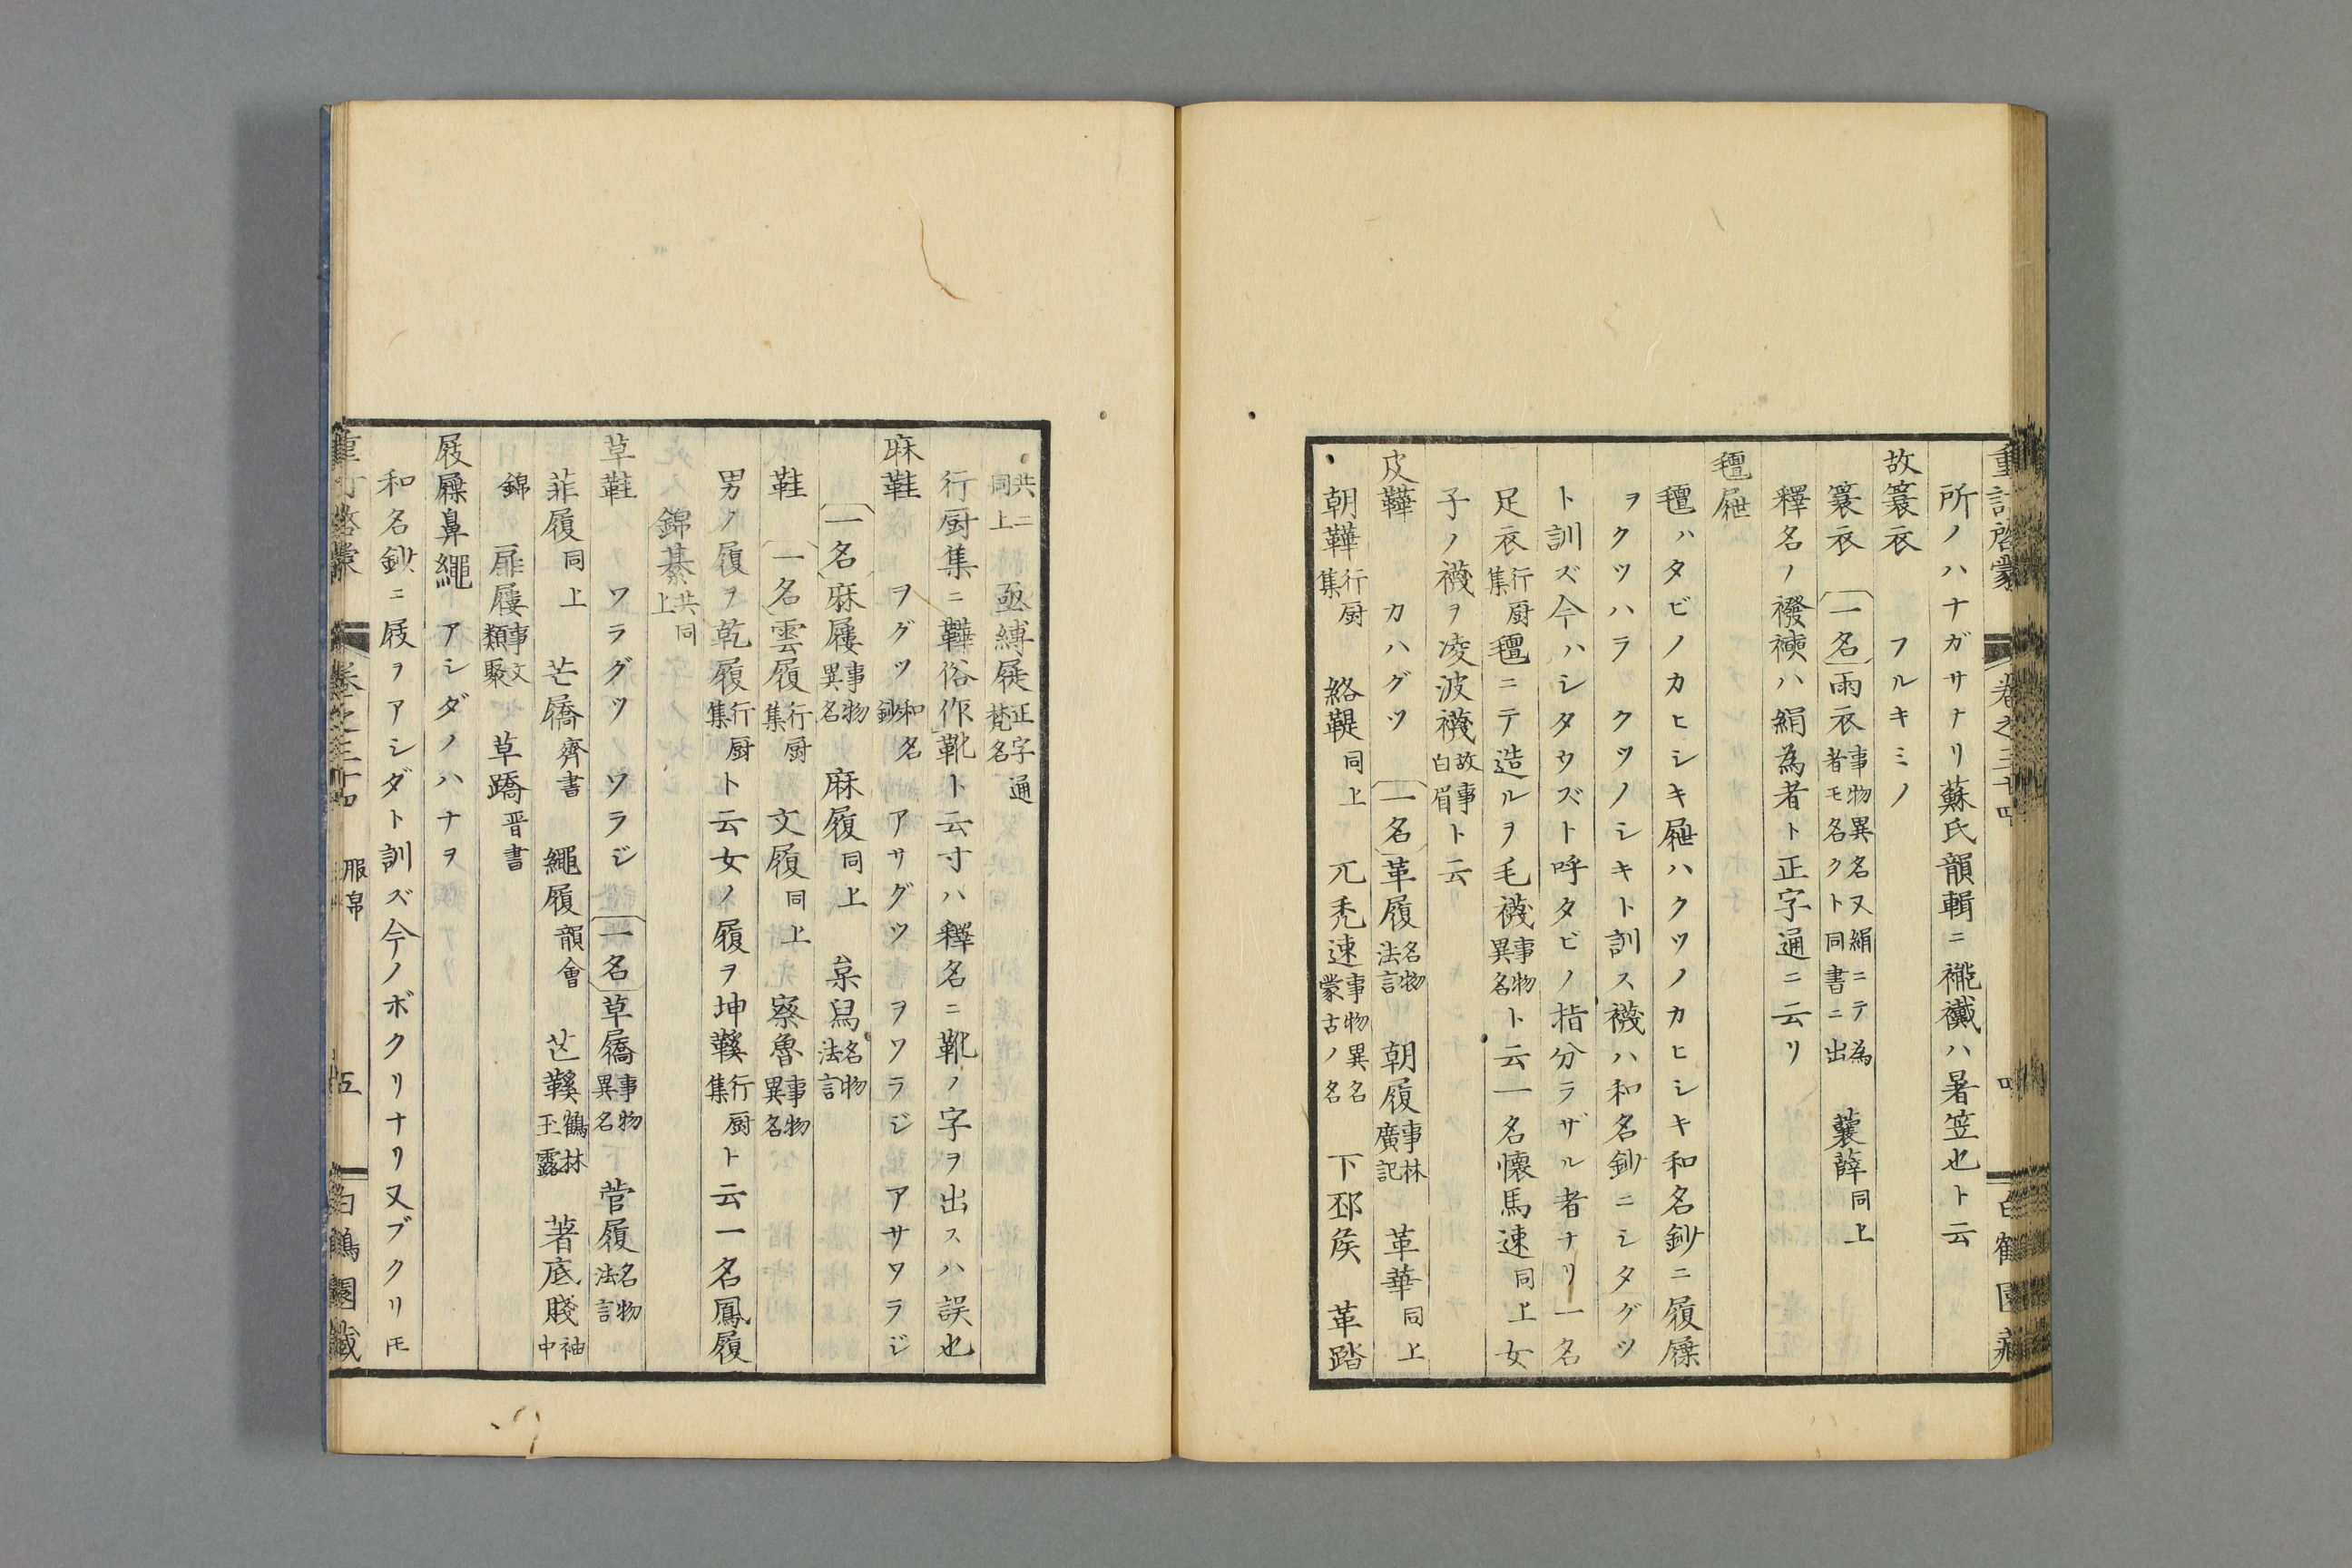 重訂啓蒙 卷之三十四 四 白鶴園藏
所ノハナガサナリ蘇氏韻輯ニ襱襳ハ暑笠也ト云
故蓑衣 フルキミノ
蓑衣 一名 雨衣 事物異名又絹ニテ為者モ名クト同書ニ出 蘘薜 同上
釋名ノ襏襫ハ絹為者ト正字通ニ云リ
氊屜
氊ハタビノカヒシキ屜ハクツノカヒシキ和名鈔ニ履屧
ヲクツハラ クツノシキト訓ス襪ハ和名鈔ニシタグツ
ト訓ズ今ハシタウズト呼タビノ指分ラザル者ナリ一名
足衣 行厨集 氊ニテ造ルヲ毛襪 事物異名 ト云一名懷馬速 同上 女
子ノ襪ヲ凌波襪 故事白眉 ト云
皮鞾 カハグツ 一名 革履 名物法言 朝履 事林廣記 革華 同上
朝鞾 行厨集 絡鞮 同上 兀禿速 事物異名蒙古ノ名 下邳矦 革踏
共ニ同上 亟縛屣 正字通梵名
行厨集ニ鞾俗作靴ト云寸ハ釋名ニ靴ノ字ヲ出スハ誤也
麻鞋 ヲグツ 和名鈔 アサグツ ヲワラジ アサワラジ
一名 麻屨 事物異名 麻履 同上 枲舄 名物法言
鞋 一名 雲履 行厨集 文履 同上 察魯 事物異名
男ノ履ヲ乾履 行厨集 ト云女ノ履ヲ坤鞵 行厨集 ト云一名鳳履
錦綦 共同上
草鞋 ワラグツ ワラジ 一名 草屩 事物異名 菅履 名物法言
菲履 同上 芒屩 齊書 繩履 韻會 芒鞵 鶴林玉露 著底賤 袖中
錦 屝屨 事文類聚 草蹻 晋書
屐屧鼻繩 アシダノハナヲ
和名鈔ニ屐ヲアシダト訓ズ今ノボクリナリ又ブクリㇳモ
重訂啓蒙 卷之三十四 服帛 五 白鶴園藏